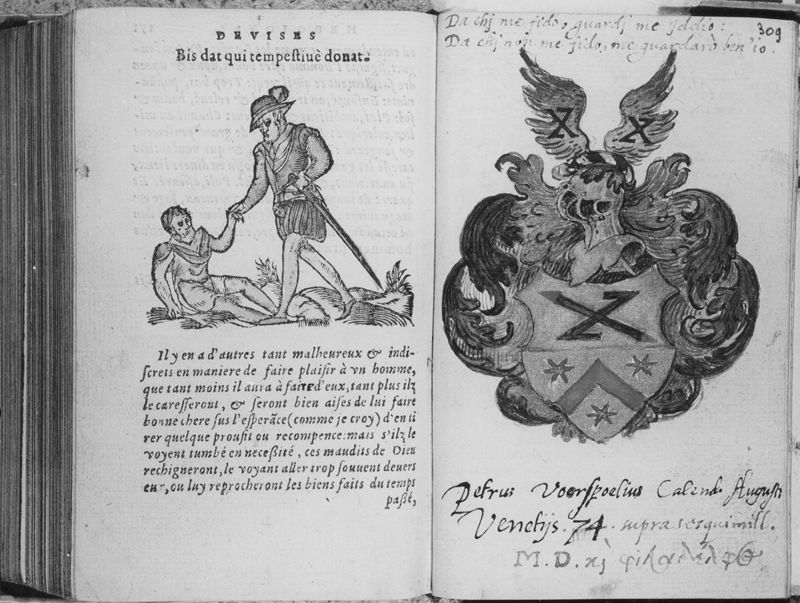 DEVISES
Bis dat qui tempestiuè donat.
Il y en a d'autres tant malheureux & indi-
screts en maniere de faire plaisir à vn homme,
que tant moins il aura à faire d'eux, tant plus ilz
le caresseront, & seront bien aises de lui faire
bonne chere sus l'esperãce (comme je croy) d'en ti
rer quelque proufit ou recompence: mais s'ilz le
voyent tumbé en necessité, ces maudits de Dieu
rechigneront, le voyant aller trop souuent deuers
eux, ou luy reprocheront les biens faits du temps
passé,
309
Da chj me fido, guardj me Iddio:
Da chj non me fido, me guardarò ben' io.
X X
Petrus Voerspoelius Calend. Augusti
Venetijs. 74. supra sesquimill.
M. D.